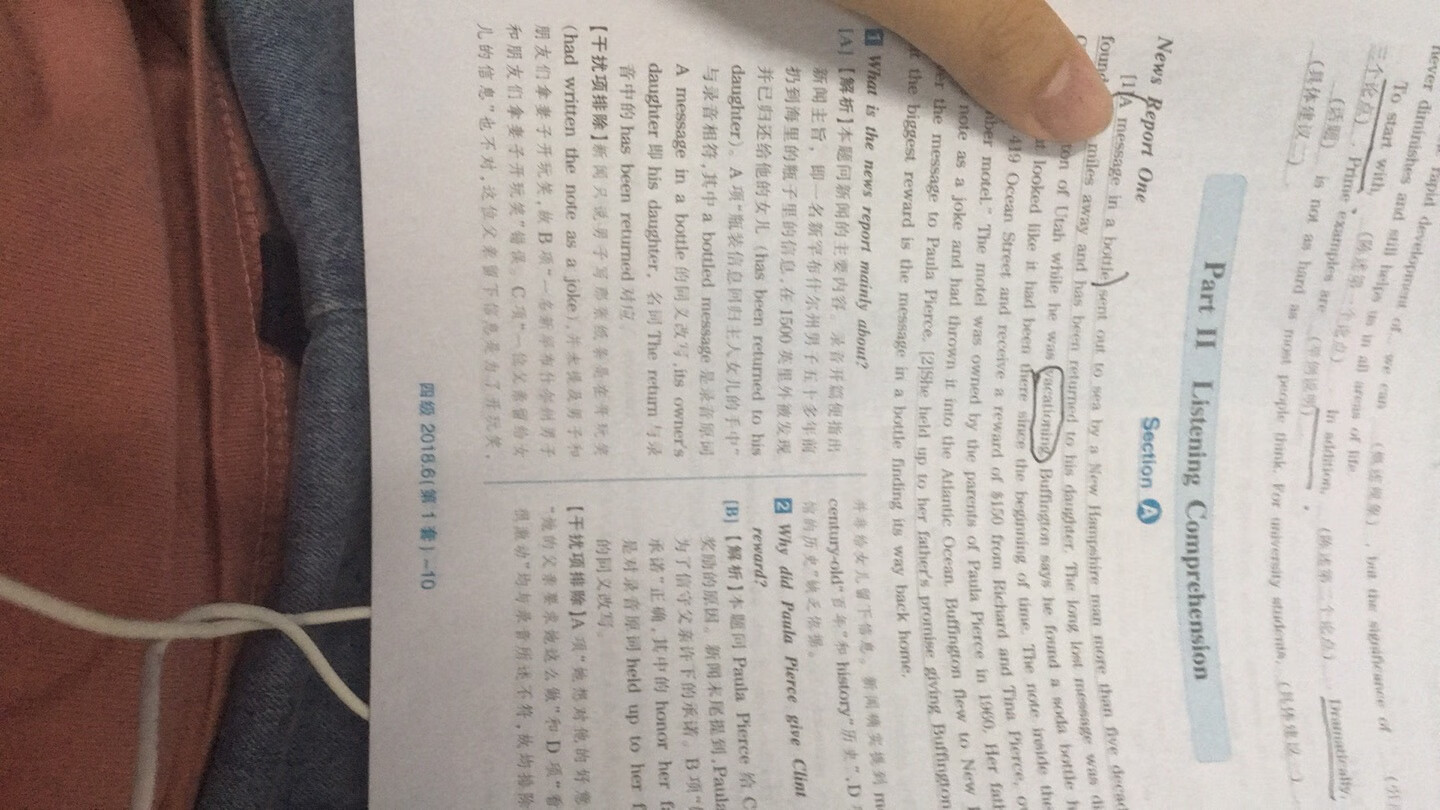 never diminishes and still helps us in all areas of life
rapid development of… we can
, but the significance of
To start with,
In addition,
Dramatically,
Prime examples are
is not as hard as most people think. For university students,
Part II Listening Comprehension
Section A
News Report One
[1]A message in a bottle sent out to sea by a New Hampshire man more than five
found miles away and has been returned to his daughter. The long lost message was
of Utah while he was vacationing. Buffington says he found a soda bottle
looked like it had been there since the beginning of time. The note inside
419 Ocean Street and receive a reward of $150 from Richard and Tina Pierce,
motel." The motel was owned by the parents of Paula Pierce in 1960. Her
note as a joke and had thrown it into the Atlantic Ocean. Buffington flew to New
the message to Paula Pierce. [2]She held up to her father's promise giving Buffington
the biggest reward is the message in a bottle finding its way back home.
1 What is the news report mainly about?
[A]【解析】本题问新闻的主要内容。录音开篇便指出
新闻主旨，即一名新罕布什尔州男子五十多年前
扔到海里的瓶子里的信息，在1500英里外被发现
并已归还给他的女儿（has been returned to his
daughter）。A项“瓶装信息回归主人女儿的手中”
与录音相符，其中a bottled message是录音原词
A message in a bottle的同义改写，its owner's
daughter即his daughter，名词The return与录
音中的has been returned对应。
【干扰项排除】新闻只说男子写那张纸条是在开玩笑
(had written the note as a joke)，并未提及男子和
朋友们拿妻子开玩笑，故B项“一名新罕布什尔州男子
和朋友们拿妻子开玩笑”错误。C项“一位父亲留给女
儿的信息”也不对，这位父亲留下信息是为了开玩笑，
并非给女儿留下信息。新闻确实提到
century-old“百年”和history“历史”，D
馆的历史”缺乏依据。
2 Why did Paula Pierce give Clint
reward?
[B]【解析】本题问Paula Pierce给
奖励的原因。新闻末尾提到，Paula
为了信守父亲许下的承诺。B项
承诺”正确，其中的honor her
是对录音原词held up to her
的同义改写。
【干扰项排除】A项“她想对他的好意
“她的父亲要求她这么做”和D项
很激动”均与录音所述不符，故均排除
四级 2018.6(第1套)-10